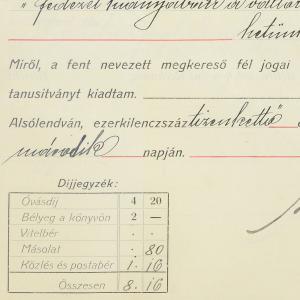 " fedezet hiánya
hetün
Miről, a fent nevezett megkereső fél jogai
tanusitványt kiadtam.
Alsólendván, ezerkilenczszáz tizenkettő
második napján.
Dijjegyzék:
Óvásdij 4 20
Bélyeg a könyvön 2 —
Vitelbér · ·
Másolat · 80
Közlés és postabér 1 · 16
Összesen 8 · 16